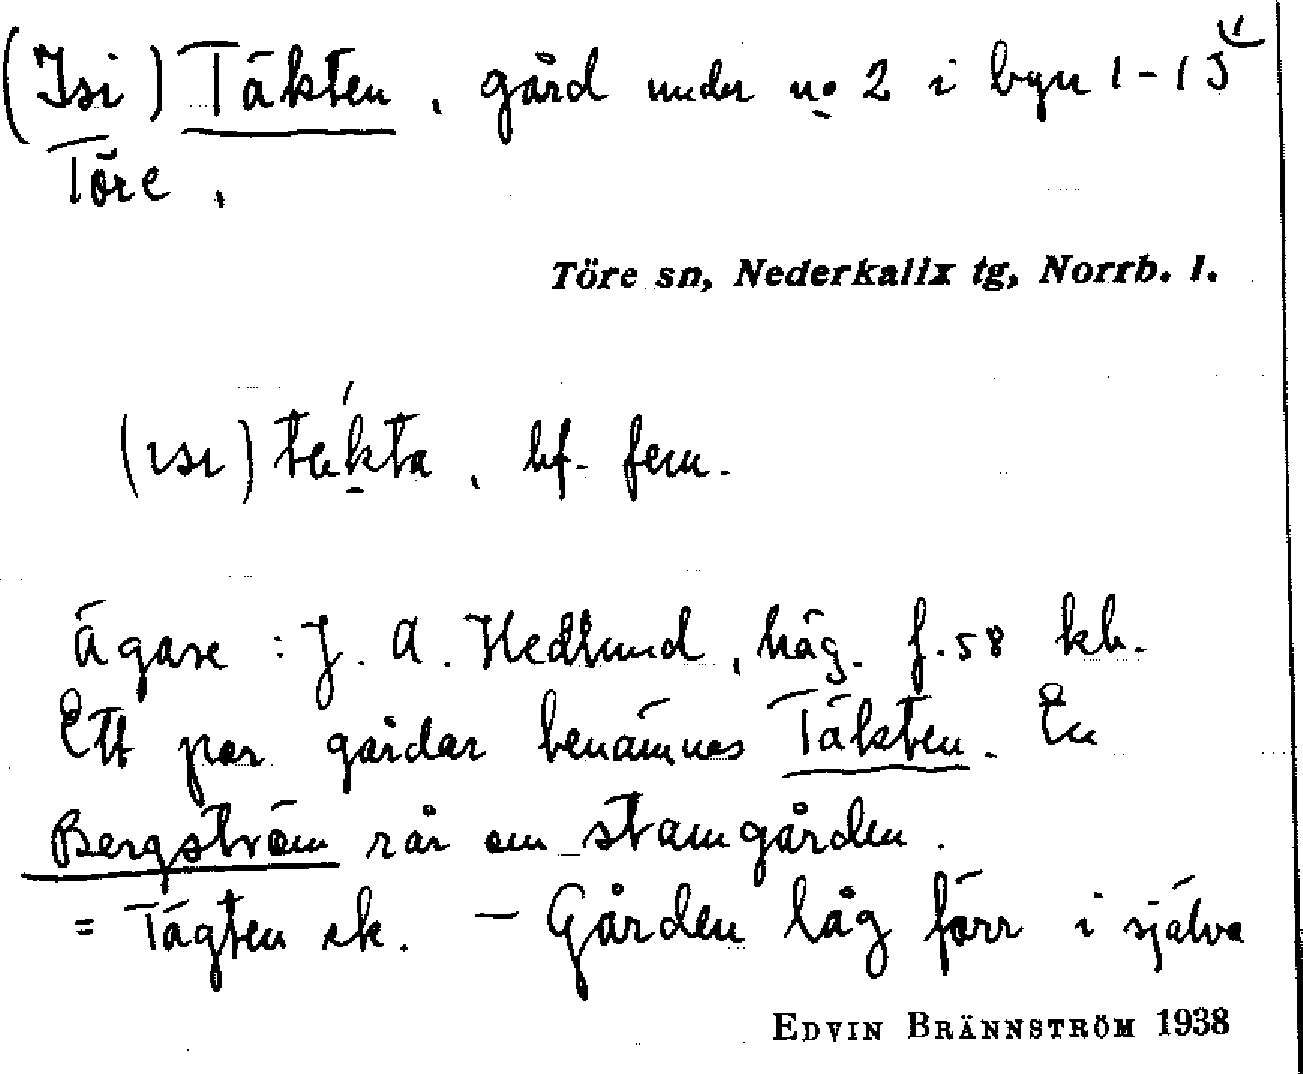 (Isi) Täkten, gård under no 2 i byn 1-15
Töre.
Töre sn, Nederkalix tg, Norrb. l.
(ɪsɪ) tækta, bf. fem.
Ägare: J. A. Hedlund, häg. f. 58 kb.
Ett par gårdar benämnes Täkten. En
Bergström rår om stamgården.
= Tägten ek. - Gården låg förr i själva
EDVIN BRÄNNSTRÖM 1938